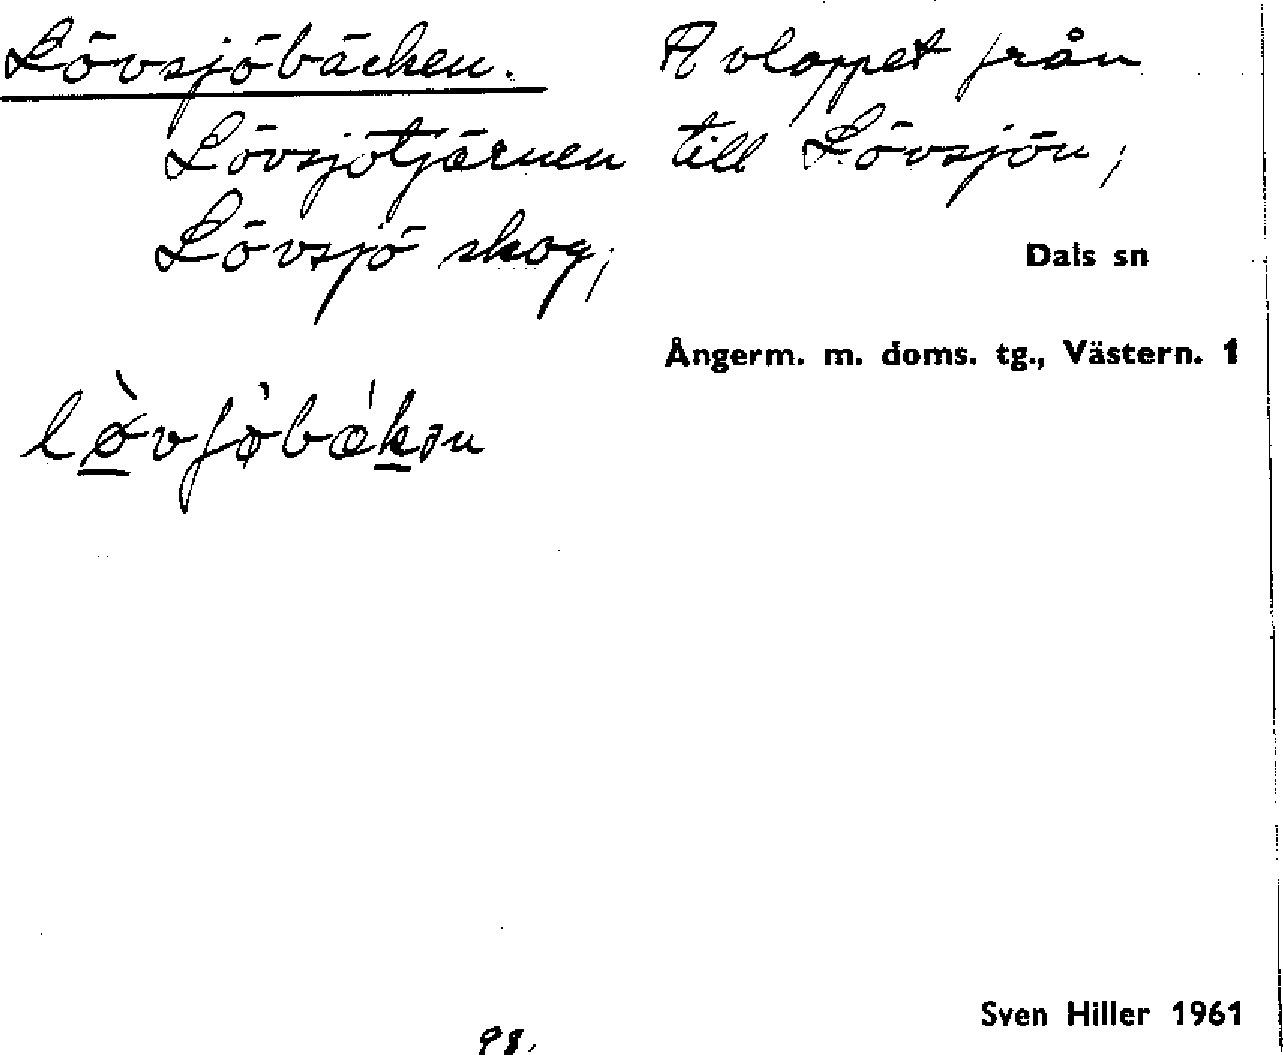 Lövsjöbäcken. Avloppet från
Lövsjötjärnen till Lövsjön,
Lövsjö skog,
Dals sn
Ångerm. m. doms. tg., Västern. 1
lø̀vʃø̀bǽkən
98.
Sven Hiller 1961